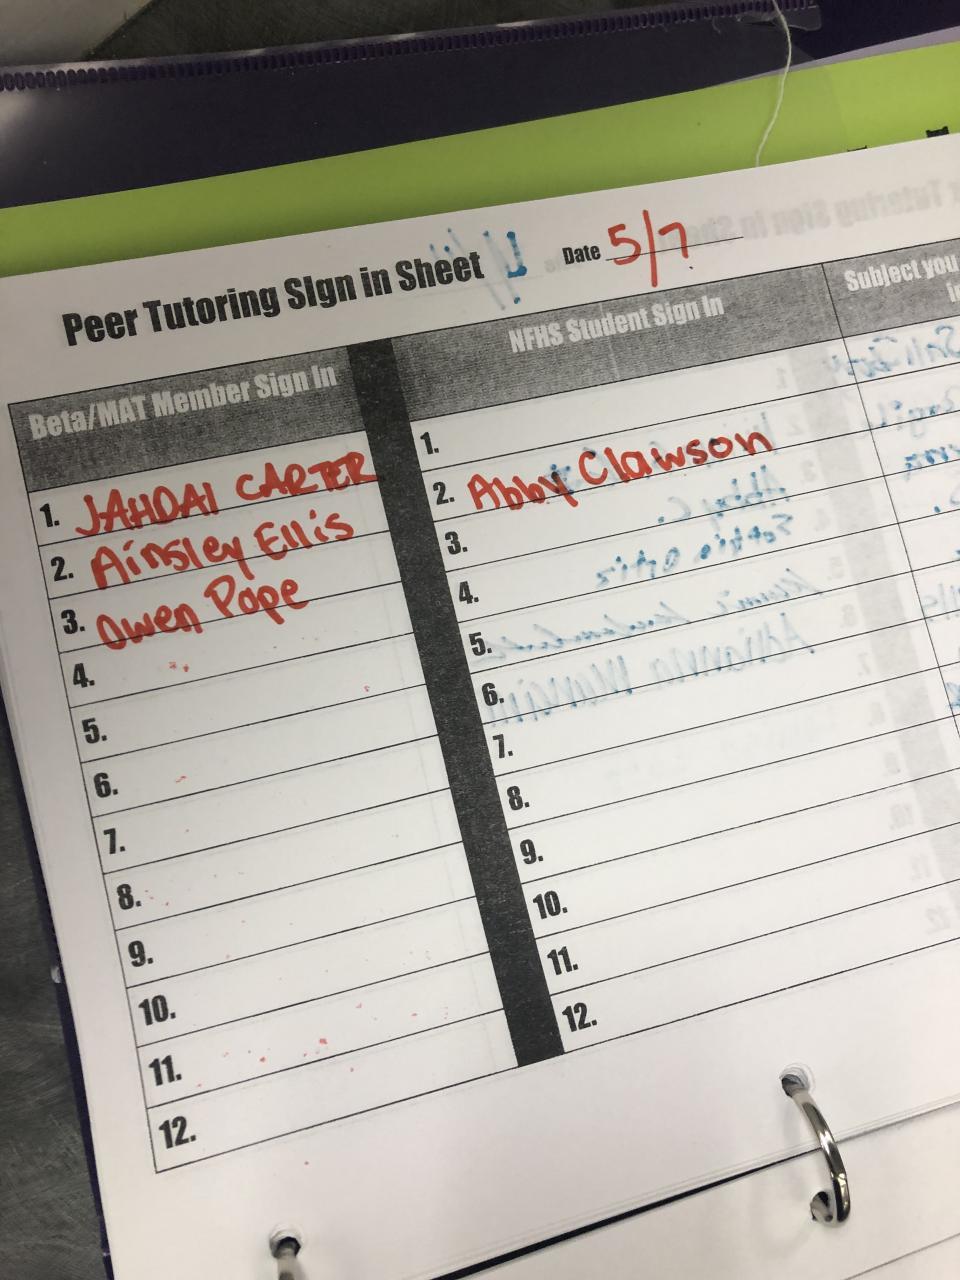 Peer Tutoring SIgn in Sheet
Date 5/7
Beta/MAT Member Sign In
NFHS Student Sign In
Subject you
1. JAHDAI CARTER
2. Ainsley Ellis
3. Owen Pope
4.
5.
6.
7.
8.
9.
10.
11.
12.
1.
2. Abby Clawson
3.
4.
5.
6.
7.
8.
9.
10.
11.
12.